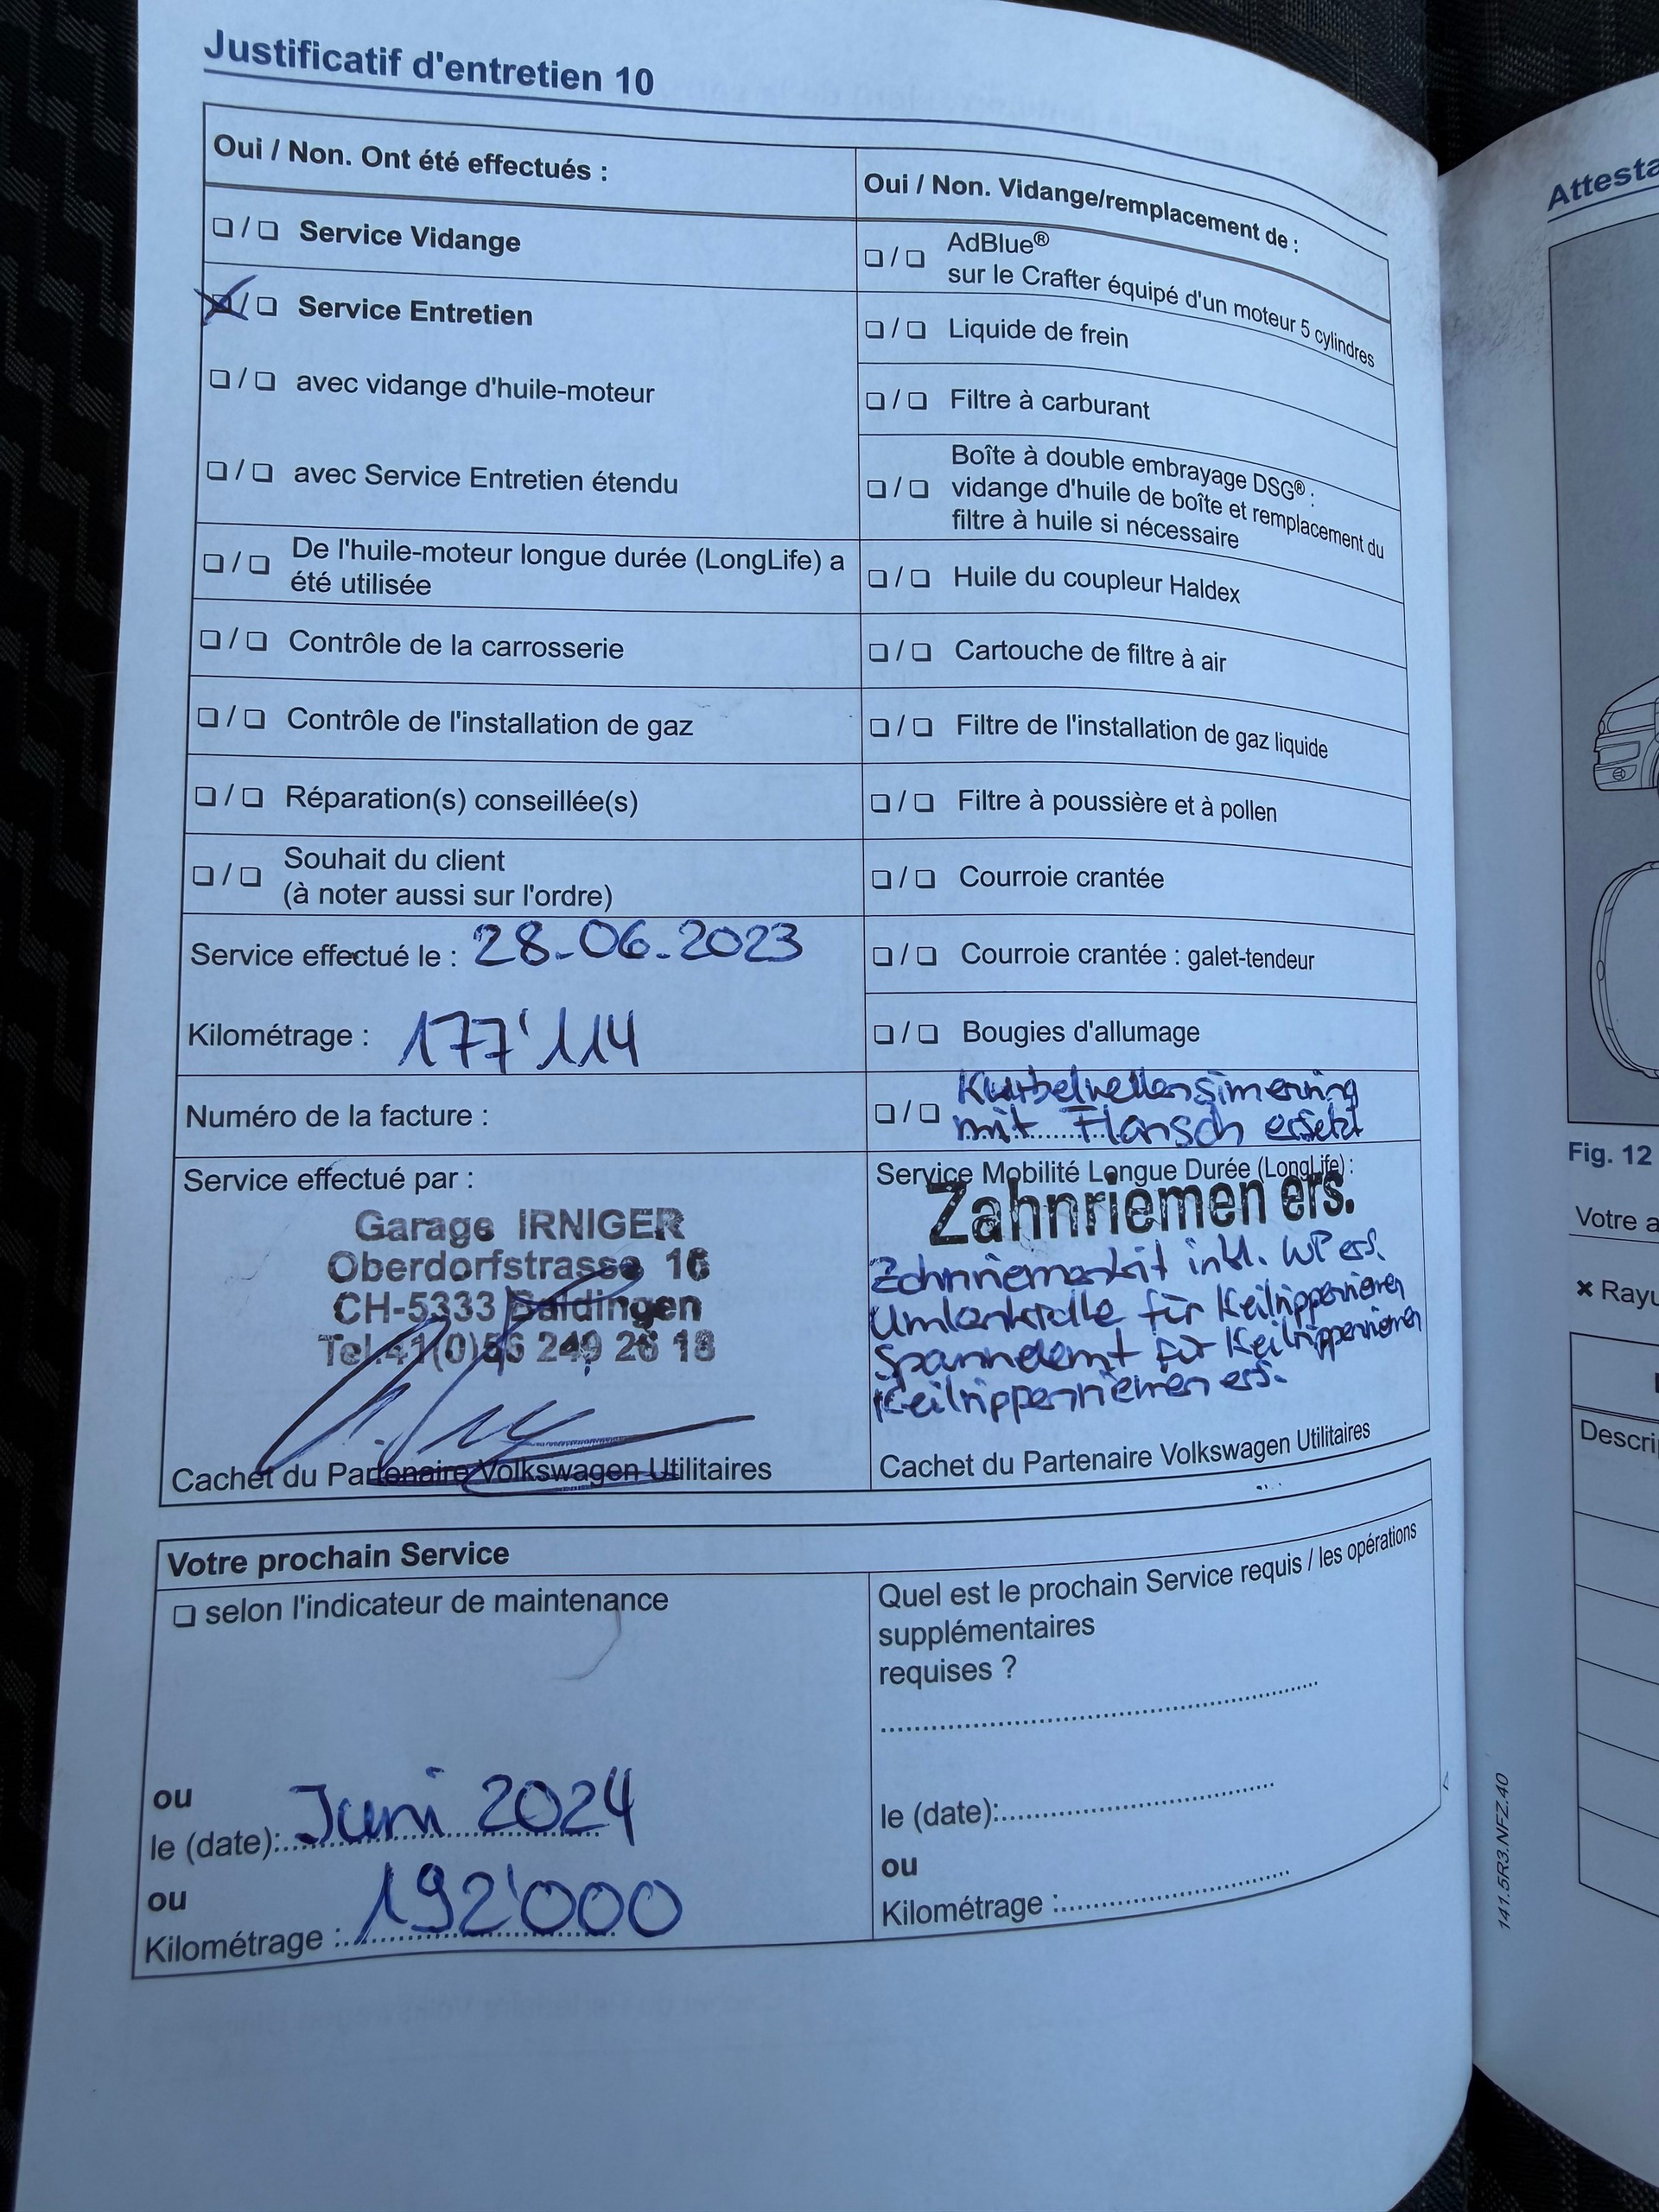 Justificatif d'entretien 10
Oui / Non. Ont été effectués :
❏ / ❏ Service Vidange
❏ / ❏ Service Entretien
❏ / ❏ avec vidange d'huile-moteur
❏ / ❏ avec Service Entretien étendu
❏ / ❏ De l'huile-moteur longue durée (LongLife) a
été utilisée
❏ / ❏ Contrôle de la carrosserie
❏ / ❏ Contrôle de l'installation de gaz
❏ / ❏ Réparation(s) conseillée(s)
❏ / ❏ Souhait du client
(à noter aussi sur l'ordre)
Service effectué le : 28.06.2023
Kilométrage : 177'114
Numéro de la facture :
Service effectué par :
Garage IRNIGER
Oberdorfstrasse 16
CH-5333 Baldingen
Tel.41(0)56 249 26 18
Cachet du Partenaire Volkswagen Utilitaires
Oui / Non. Vidange/remplacement de :
❏ / ❏ AdBlue®
sur le Crafter équipé d'un moteur 5 cylindres
❏ / ❏ Liquide de frein
❏ / ❏ Filtre à carburant
❏ / ❏ Boîte à double embrayage DSG® :
vidange d'huile de boîte et remplacement du
filtre à huile si nécessaire
❏ / ❏ Huile du coupleur Haldex
❏ / ❏ Cartouche de filtre à air
❏ / ❏ Filtre de l'installation de gaz liquide
❏ / ❏ Filtre à poussière et à pollen
❏ / ❏ Courroie crantée
❏ / ❏ Courroie crantée : galet-tendeur
❏ / ❏ Bougies d'allumage
❏ / ❏ Kurbelwellensimering
mit Flansch ersetzt
Service Mobilité Longue Durée (LongLife) :
Zahnriemen ers.
Zahnriemenkit inkl. WP ers.
Umlenkrolle für Keilrippenriemen
Spannelemt für Keilrippenriemen
Keilrippenriemen ers.
Cachet du Partenaire Volkswagen Utilitaires
Votre prochain Service
❏ selon l'indicateur de maintenance
ou
le (date): Juni 2024
ou
Kilométrage : 192'000
Quel est le prochain Service requis / les opérations
supplémentaires
requises ?
le (date):
ou
Kilométrage :
141.5R3.NFZ.40
Attesta
Fig. 12
Votre a
× Rayu
Descri